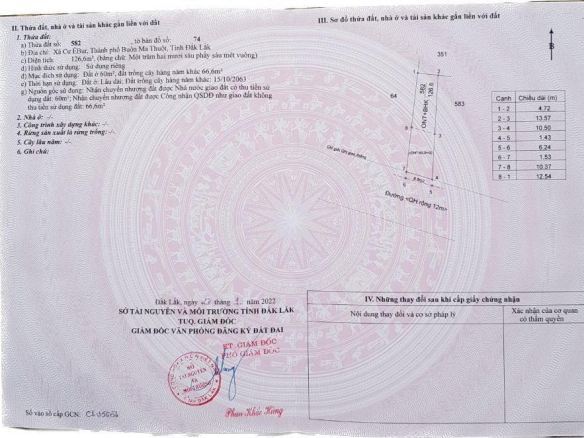 II. Thửa đất, nhà ở và tài sản khác gắn liền với đất
1. Thửa đất:
a) Thửa đất số: 582 tờ bản đồ số: 74
b) Địa chỉ: Xã Cư ÊBur, Thành phố Buôn Ma Thuột, Tỉnh Đắk Lắk
c) Diện tích: 126,6m², (bằng chữ: Một trăm hai mươi sáu phẩy sáu mét vuông)
d) Hình thức sử dụng: Sử dụng riêng
đ) Mục đích sử dụng: Đất ở 60m²; đất trồng cây hàng năm khác 66,6m²
e) Thời hạn sử dụng: Đất ở: Lâu dài; Đất trồng cây hàng năm khác: 15/10/2063
g) Nguồn gốc sử dụng: Nhận chuyển nhượng đất được Nhà nước giao đất có thu tiền sử
dụng đất: 60m²; Nhận chuyển nhượng đất được Công nhận QSDĐ như giao đất không
thu tiền sử dụng đất: 66,6m²
2. Nhà ở: -/-
3. Công trình xây dựng khác: -/-
4. Rừng sản xuất là rừng trồng: -/-
5. Cây lâu năm: -/-
6. Ghi chú:
Đắk Lắk, ngày tháng năm 2022
SỞ TÀI NGUYÊN VÀ MÔI TRƯỜNG TỈNH ĐẮK LẮK
TUQ. GIÁM ĐỐC
GIÁM ĐỐC VĂN PHÒNG ĐĂNG KÝ ĐẤT ĐAI
KT. GIÁM ĐỐC
PHÓ GIÁM ĐỐC
SỞ
TÀI NGUYÊN
VÀ
MÔI TRƯỜNG
Phan Khắc Hùng
Số vào sổ cấp GCN:
III. Sơ đồ thửa đất, nhà ở và tài sản khác gắn liền với đất
B
351
1
2
582
126.6
ONT+BHK
64
583
8
3
7
4
6
5
Đường <QH rộng 12m>
Cạnh Chiều dài (m)
1 - 2 4.72
2 - 3 13.57
3 - 4 10.50
4 - 5 1.43
5 - 6 6.24
6 - 7 1.53
7 - 8 10.37
8 - 1 12.54
IV. Những thay đổi sau khi cấp giấy chứng nhận
Nội dung thay đổi và cơ sở pháp lý
Xác nhận của cơ quan
có thẩm quyền